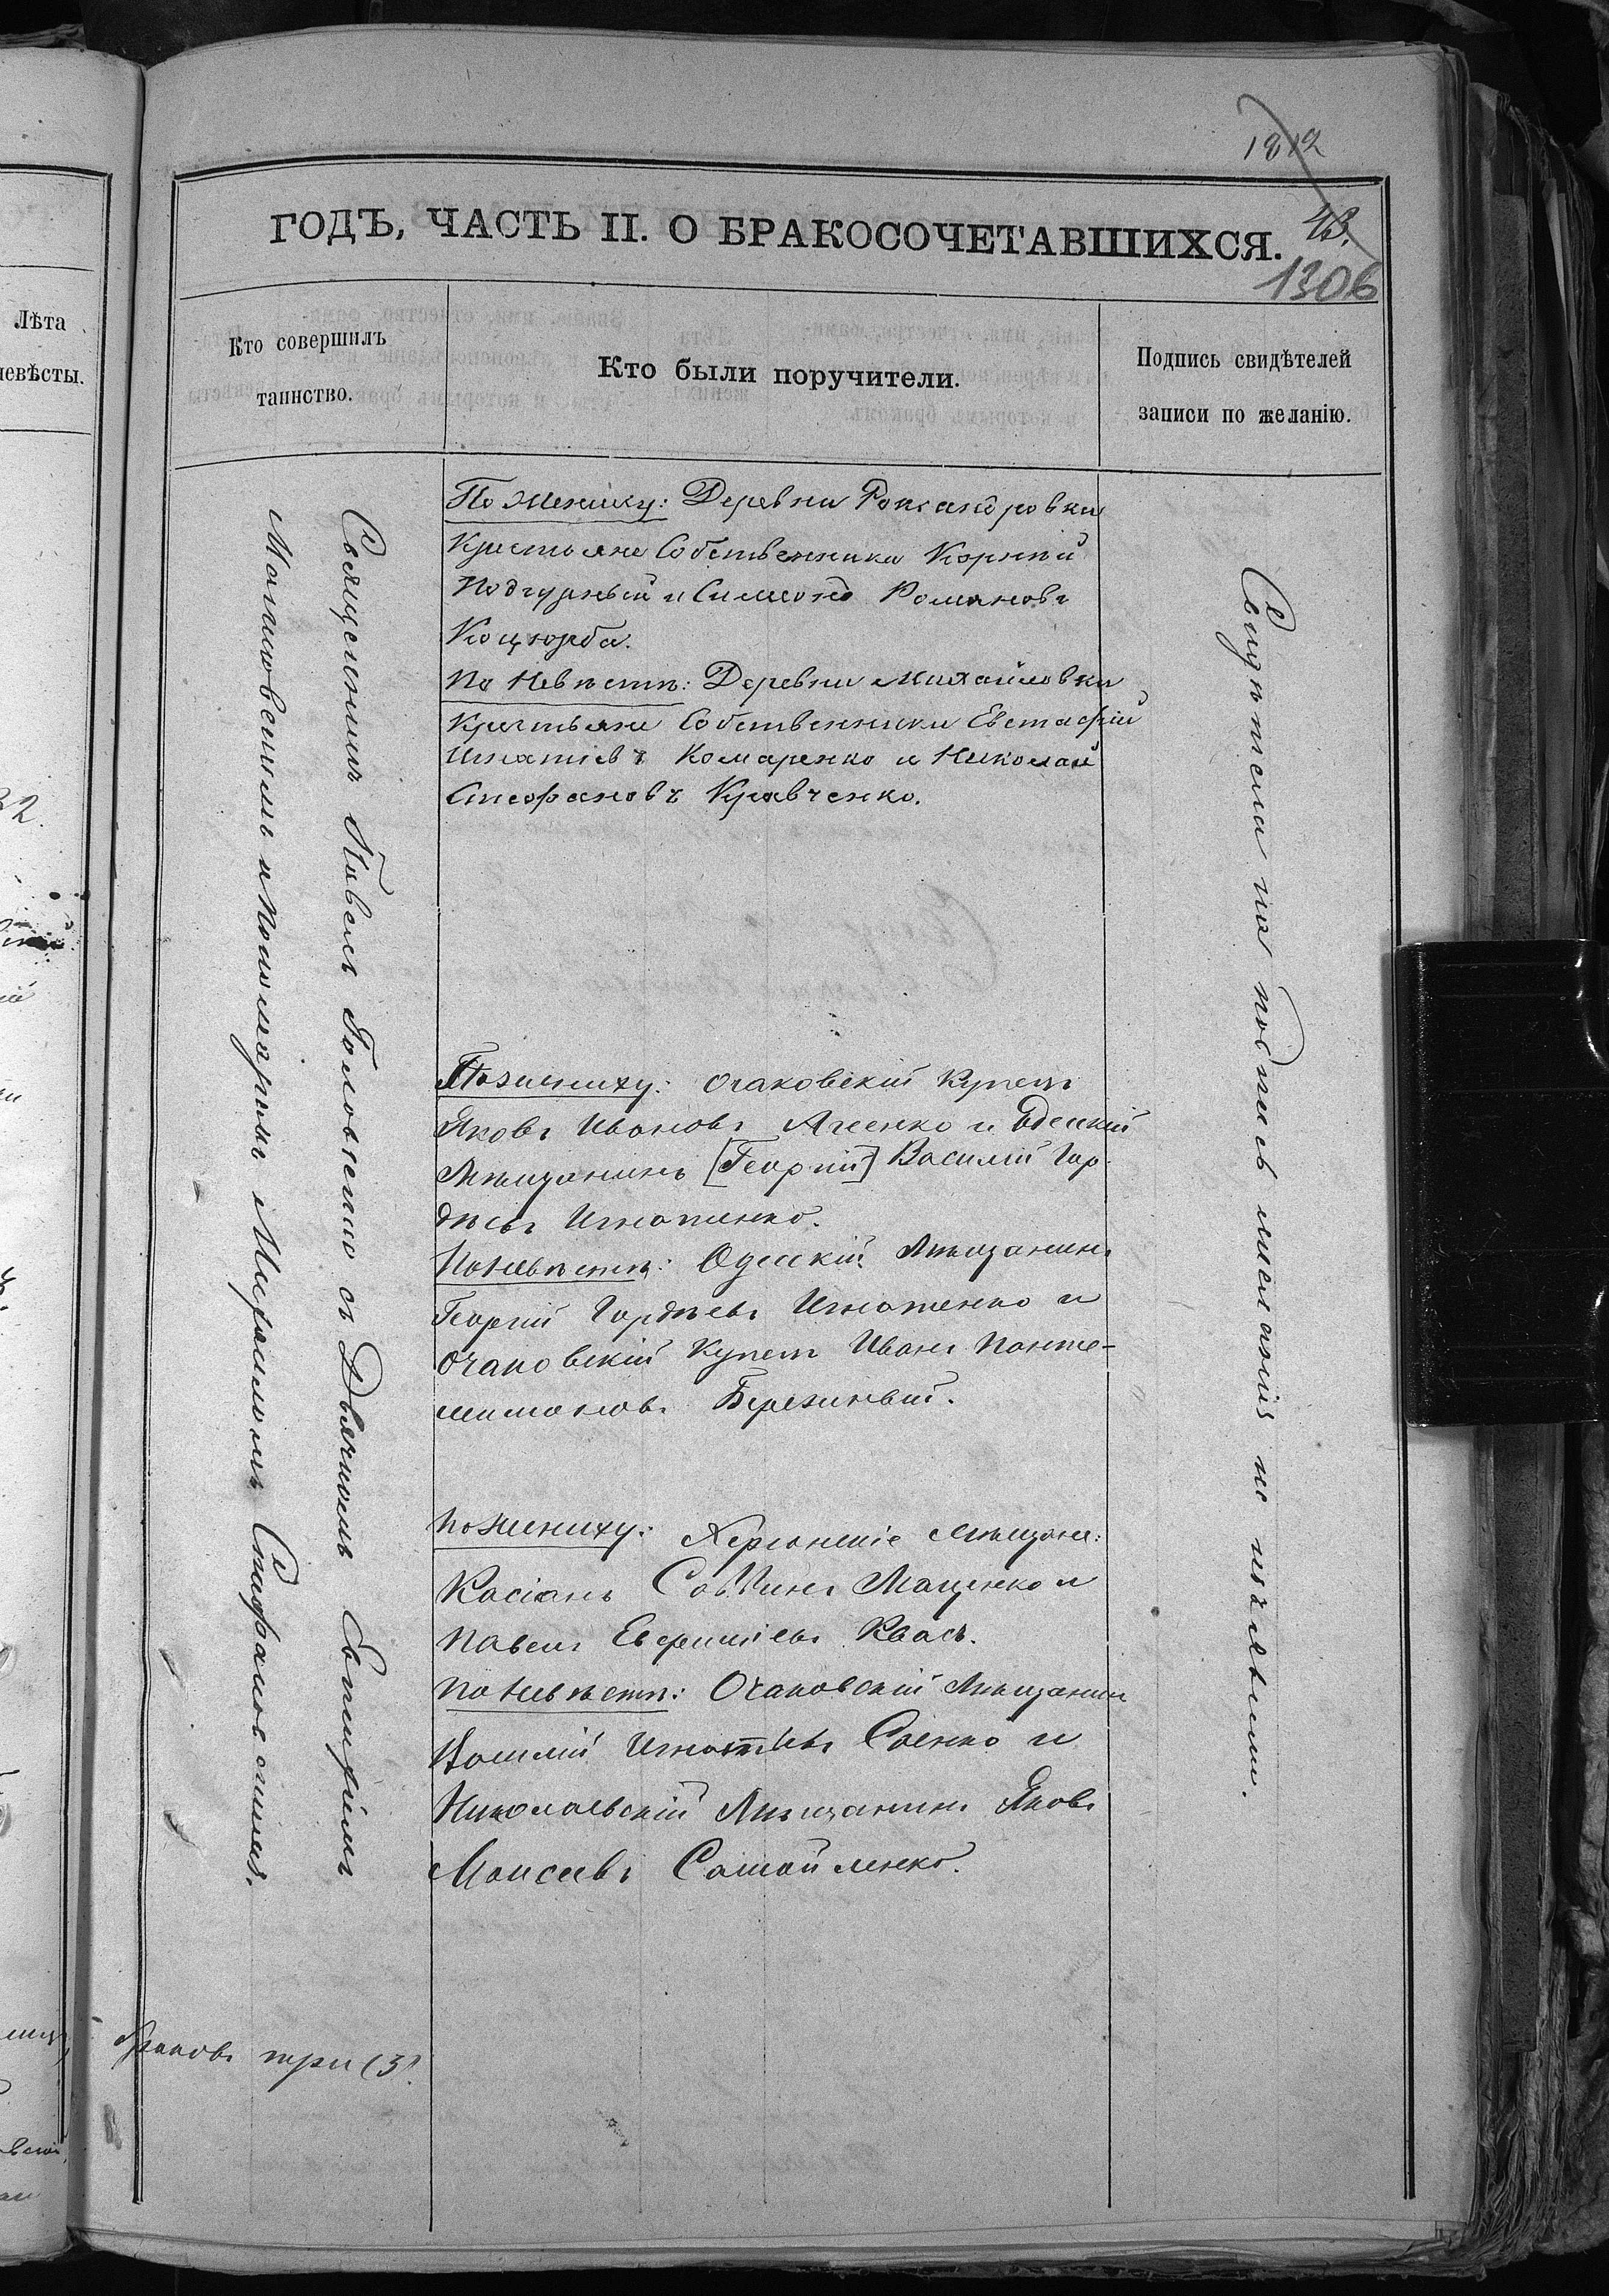 1812
43.
1306
ГОДЪ, ЧАСТЬ II. О БРАКОСОЧЕТАВШИХСЯ.
Лѣта
невѣсты.
Кто совершилъ
таинство.
Кто были поручители.
Подпись свидѣтелей
записи по желанію.
Священникъ Павелъ Головченко съ Дьячкомъ Евтифіемъ
и Пономаремъ
По жениху: Деревни Роксандровки
Крестьяне Собственники Корній
Подгурный и Симеонъ Романовъ
Коцюрба.
По Невѣстѣ: Деревни Михайловки
Крестьяне Собственники Евстафій
Игнатіевъ Комаренко и Николай
Стефановъ Кравченко.
По жениху: Очаковскій Купецъ
Яковъ Ивановъ Агеенко и Одесскій
Мѣщанинъ [Георгій] Василій Гор-
дѣевъ Игнатенко.
По Невѣстѣ: Одесскій Мѣщанинъ
Георгій Гордѣевъ Игнатенко и
Очаковскій Купецъ Иванъ Панте-
лимоновъ Березиный.
По жениху: Херсонскіе Мѣщане:
Касіанъ Саввинъ Маценко и
Павелъ Евфиміевъ Квасъ.
По Невѣстѣ: Очаковскій Мѣщанинъ
Василій Игнатьевъ Саенко и
Николаевскій Мѣщанинъ Яковъ
Моисеевъ Самойленко.
Свидѣтели на подпись желанія не изъявили.
браковъ три (3).